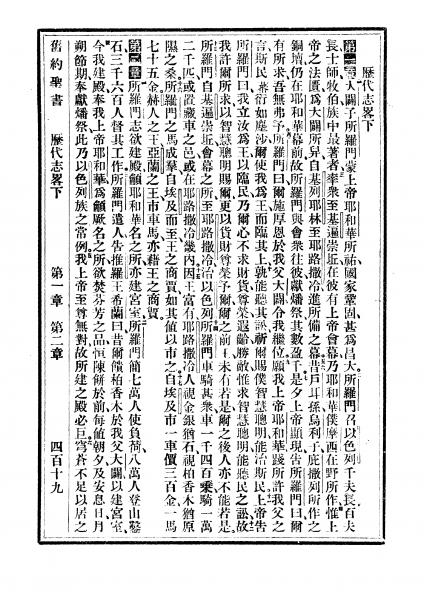 歷代志畧下
第一章 大闢子所羅門蒙上帝耶和華所祐國家鞏固甚爲昌大所羅門召以色列千夫長百夫
長士師牧伯族中最著者率衆至基遍崇坵在彼有上帝會幕乃耶和華僕摩西在野所作惟上
帝之法匱爲大闢所舁自基列耶林至耶路撒冷進所備之幕昔戶耳孫烏利子庇撒列所作之
銅壇仍在耶和華幕前故所羅門與會衆往彼獻燔祭其數盈千是夕上帝顯現告所羅門曰爾
有所求吾無弗予所羅門曰爾施厚恩於我父大闢令我繼位願我上帝耶和華踐所許我父之
言斯民蕃衍如塵沙爾使我爲王而臨其上孰能聽其訟祈爾賜僕智慧聰明能治斯民上帝告
所羅門曰我立汝爲王以臨民乃爾心不求財貨尊榮遐齡勝敵惟求智慧聰明能聽民之訟故
我許爾所求以智慧聰明賜爾更以貨財尊榮予爾爾之前王未有若是爾之後人亦不能若是
所羅門自基遍崇坵會幕之所至耶路撒冷治以色列所羅門車騎甚衆車一千四百乘騎一萬
二千匹或置藏車之邑或在耶路撒冷畿內因王富有耶路撒冷人視金銀猶石視柏香木猶原
隰之桑所羅門之馬成羣自埃及而至王之商賈如其値以市之自埃及市一車價三百金一馬
七十五金赫人之王亞蘭之王市車馬亦藉王之商賈
第二章 所羅門志欲建殿籲耶和華名之所亦建宮室所羅門簡七萬人使負荷八萬人登山鑿
石三千六百人督其工作所羅門遣人告推羅王希蘭曰昔爾饋柏香木於我父大闢以建宮室
今我建殿奉我上帝耶和華爲籲厥名之所欲焚芬芳之品恒陳餅於前每値朝夕及安息日月
朔節期奉獻燔祭此乃以色列族之常例我上帝至尊無對故所建之殿必巨穹蒼不足以居之
舊約聖書 歷代志畧下 第一章 第二章 四百十九